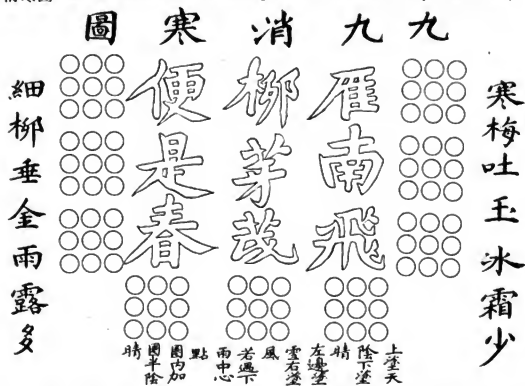 九九消寒圖
寒梅吐玉冰霜少
雁南飛
柳芽茂
便是春
細柳垂金雨露多
上塗天
陰下塗
晴
左邊塗
雪右塗
風
若遇下
雨中心
點
圈内加
圈半陰
晴